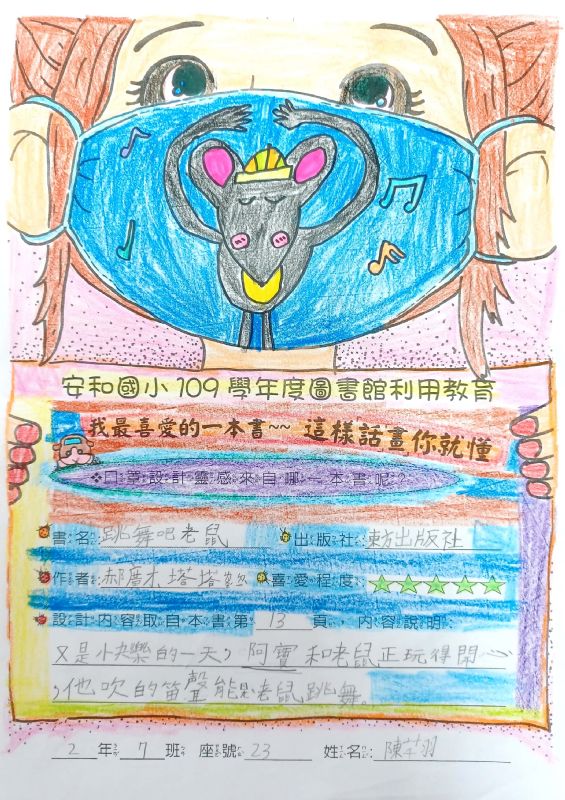 安和國小109學年度圖書館利用教育
我最喜愛的一本書~~ 這樣話畫你就懂
❖口罩設計靈感來自哪一本書呢?
書名:跳舞吧老鼠 出版社:東方出版社
作者:郝廣才 塔塔 喜愛程度:
設計內容取自本書第 13 頁,內容說明:
又是小快樂的一天,阿寶和老鼠正玩得開心
,他吹的笛聲能老鼠跳舞。
2 年 7 班 座號:23 姓名:陳羽